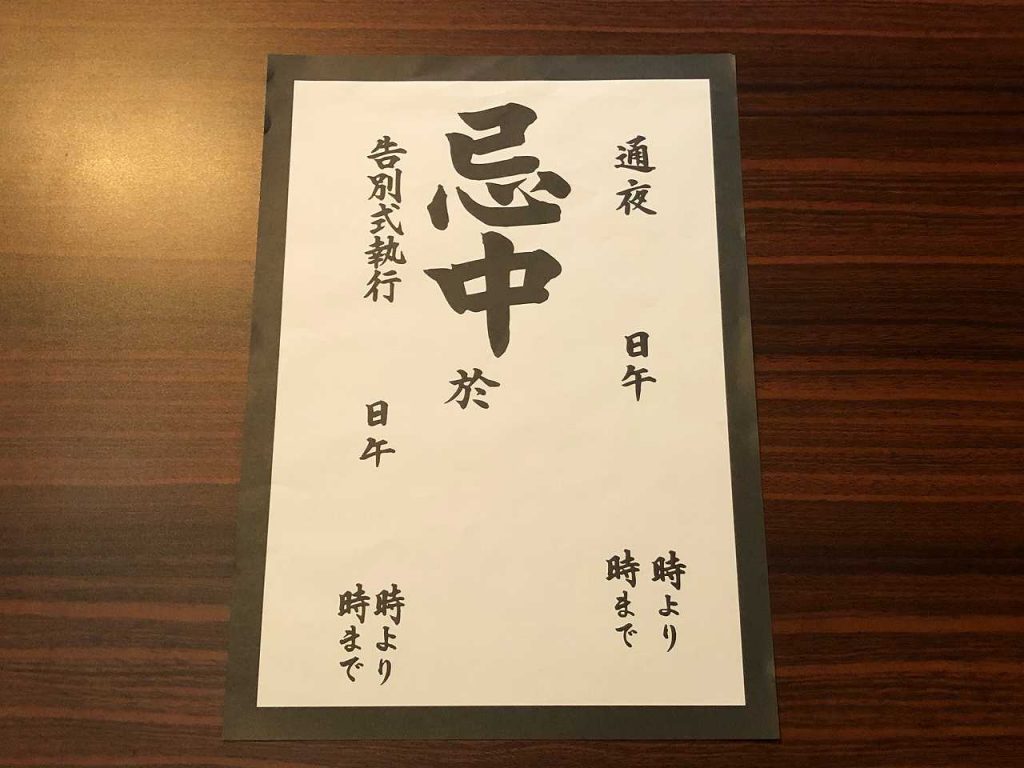 通夜 日午 時より
時まで
忌中 於
告別式執行 日午 時より
時まで